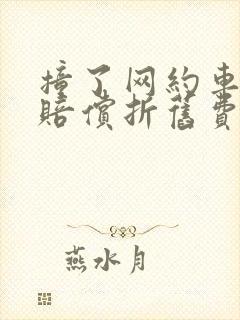 撞了网约车
賠償折舊費
燕水月